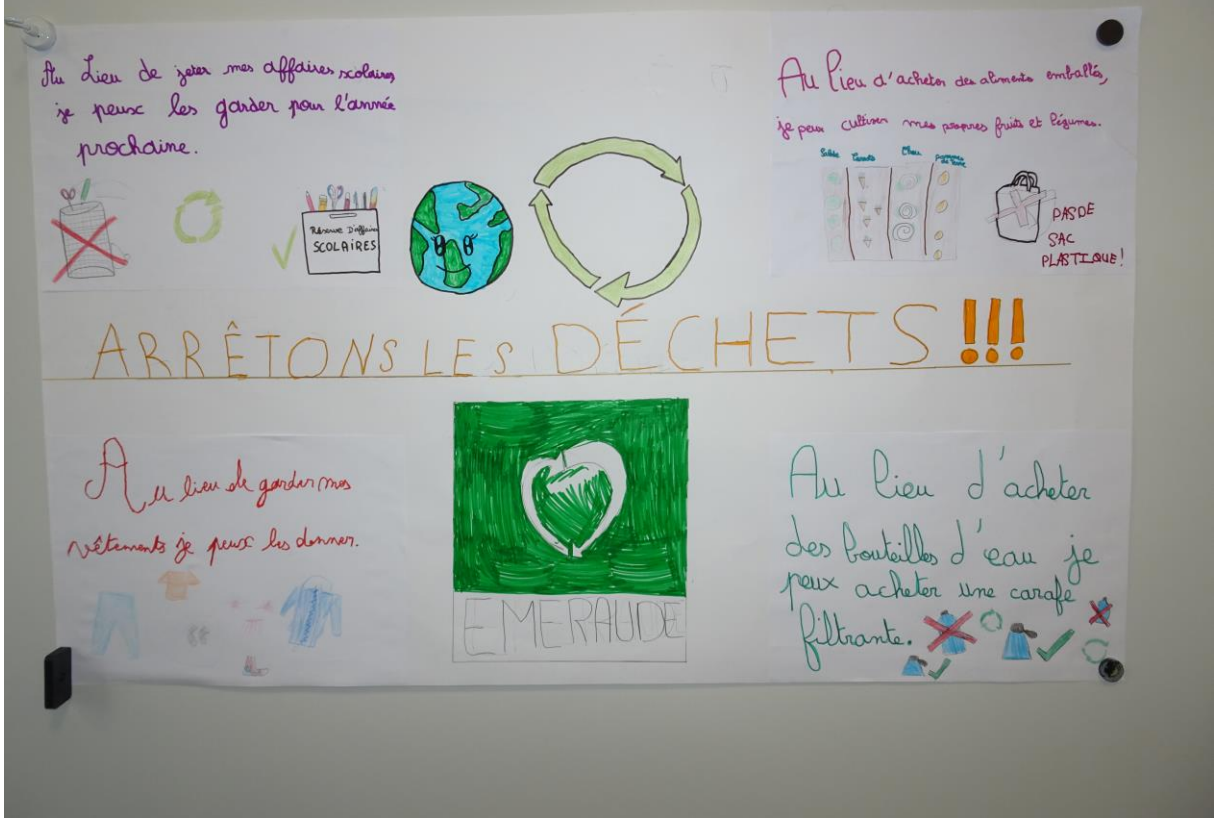 Au Lieu de jeter mes affaires scolaires
je peux les garder pour l'année
prochaine.
Réserve D'affaires
SCOLAIRES
Au lieu d'acheter des aliments emballés,
je peux cultiver mes propres fruits et légumes.
Salade Carotte Chou pommes de terre
PAS DE
SAC
PLASTIQUE!
ARRÊTONS LES DÉCHETS!!!
Au lieu de garder mes
vêtements je peux les donner.
EMERAUDE
Au lieu d'acheter
des bouteilles d'eau je
peux acheter une carafe
filtrante.